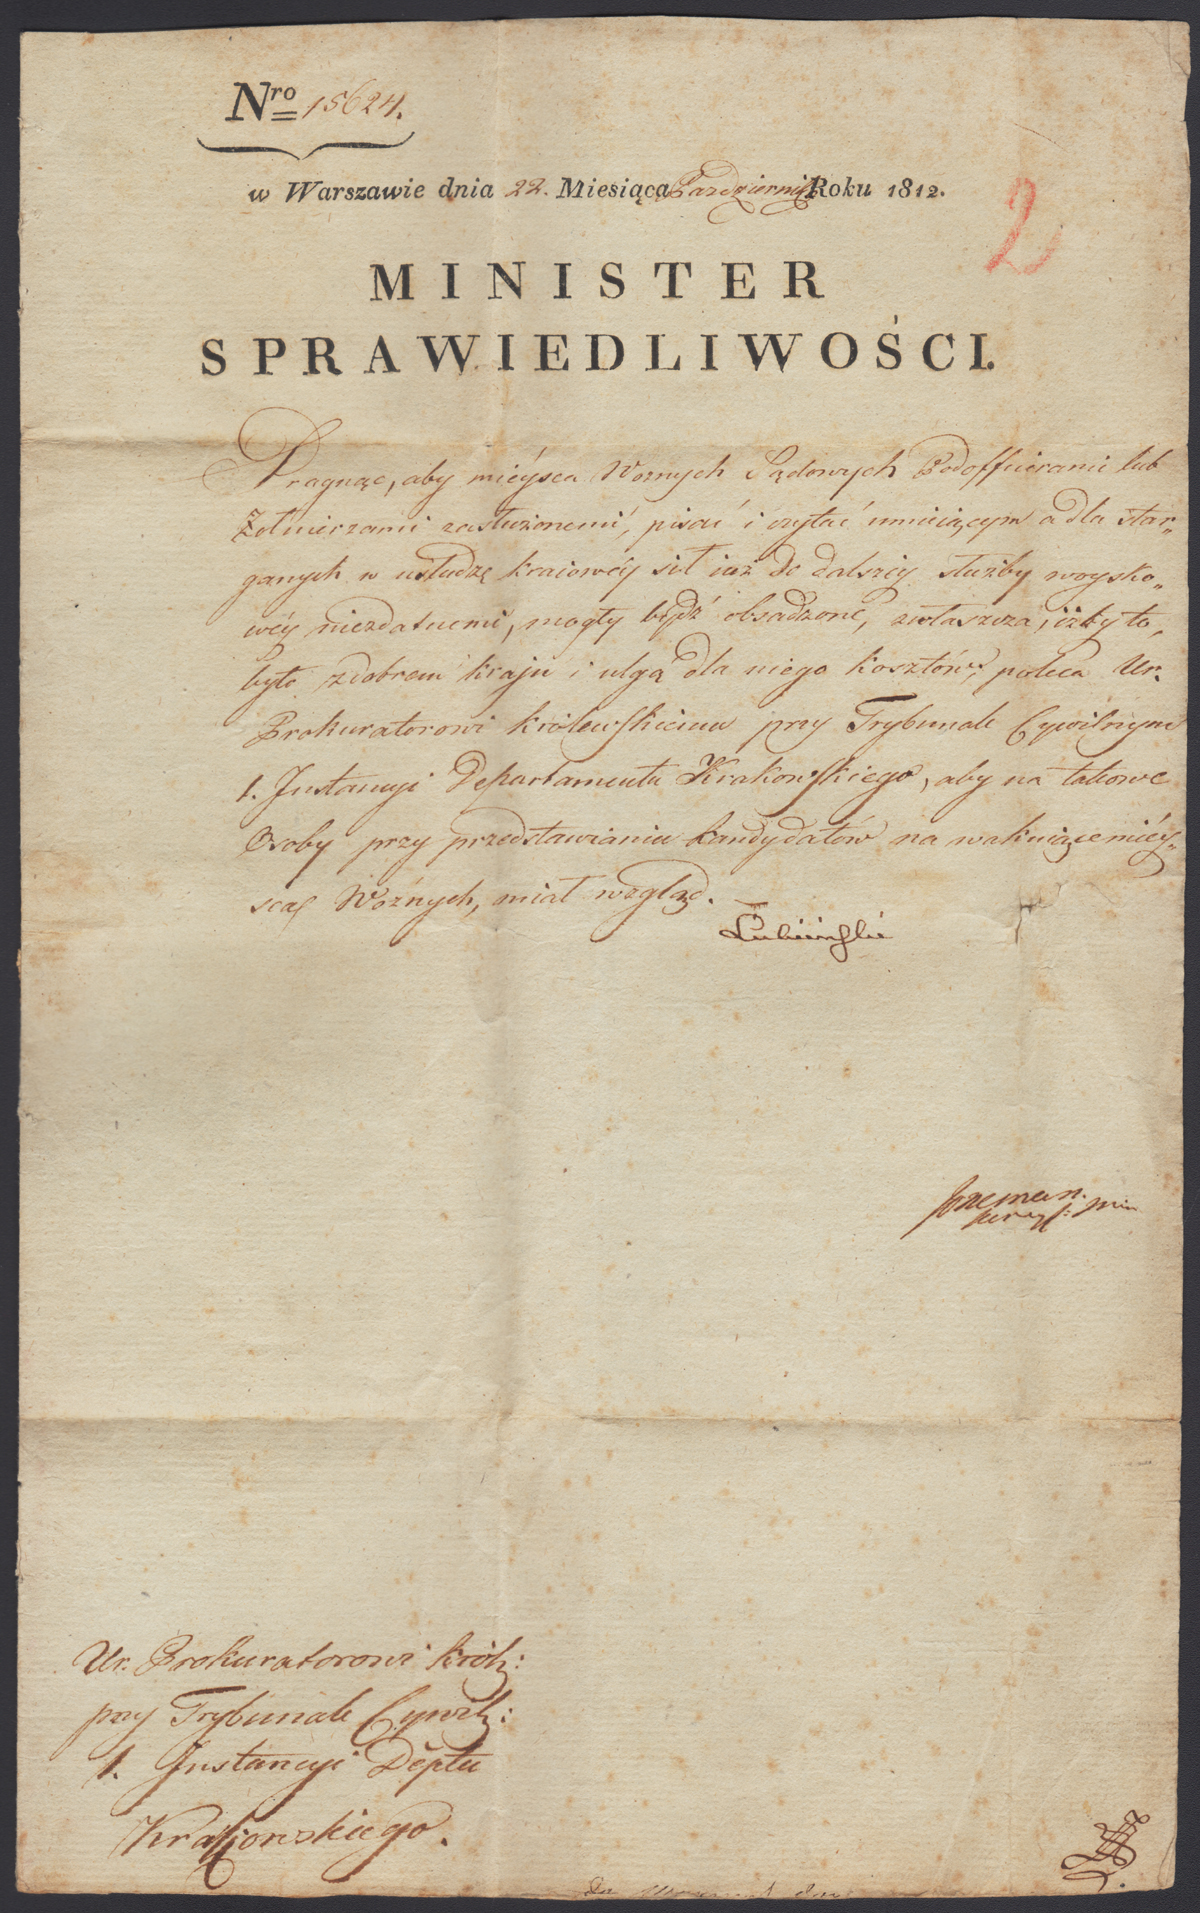 Nro 15624.
w Warszawie dnia 22. Miesiąca Październik Roku 1812.
2
MINISTER
SPRAWIEDLIWOŚCI.
Pragnąc, aby mieysca Woznych Sądowych Podofficerami lub
Żołnierzami zasłużonemi, pisać i czytać umieiącym a dla star„
ganych w usłudzę kraiowéy sił iuż do dalszéy służby woysko„
wéy niezdatnemi, mogły bydź obsadzone, zwłaszcza, iżby to,
było z dobrem kraju i ulgą dla niego kosztów, poleca Ur.
Prokuratorowi królewskiemu przy Trybunale Cywilnym
1. Instancyi Departamentu Krakowskiego, aby na takowe
Osoby przy przedstawianiu kandydatów na wakuiące miéy„
sca Woźnych, miał wzgląd.
Łubieński
Ur. Prokuratorowi król:
przy Trybunale Cywil:
1. Instancyi Deptu
Krakowskiego.